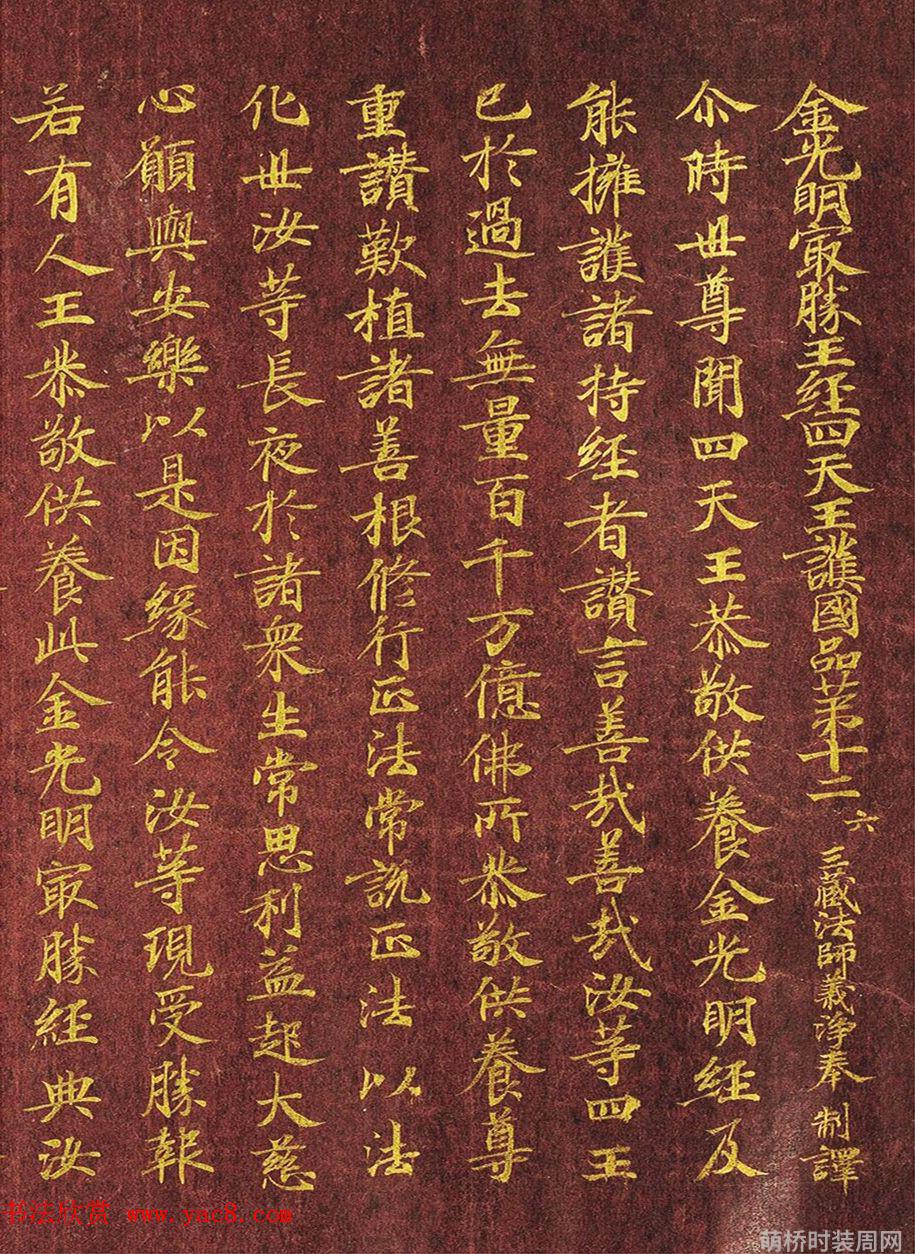 金光明冣勝王經四天王護國品苐十二 六 三藏法師義淨奉 制譯
尒時世尊聞四天王恭敬供養金光明經及
能擁護諸持經者讚言善哉善哉汝等四王
已於過去無量百千万億佛所恭敬供養尊
重讚歎植諸善根修行正法常說正法以法
化世汝等長夜於諸衆生常思利益起大慈
心願與安樂以是因緣能令汝等現受勝報
若有人王恭敬供養此金光明冣勝經典汝
书法欣赏 www.yac8.com
萌桥时装周网